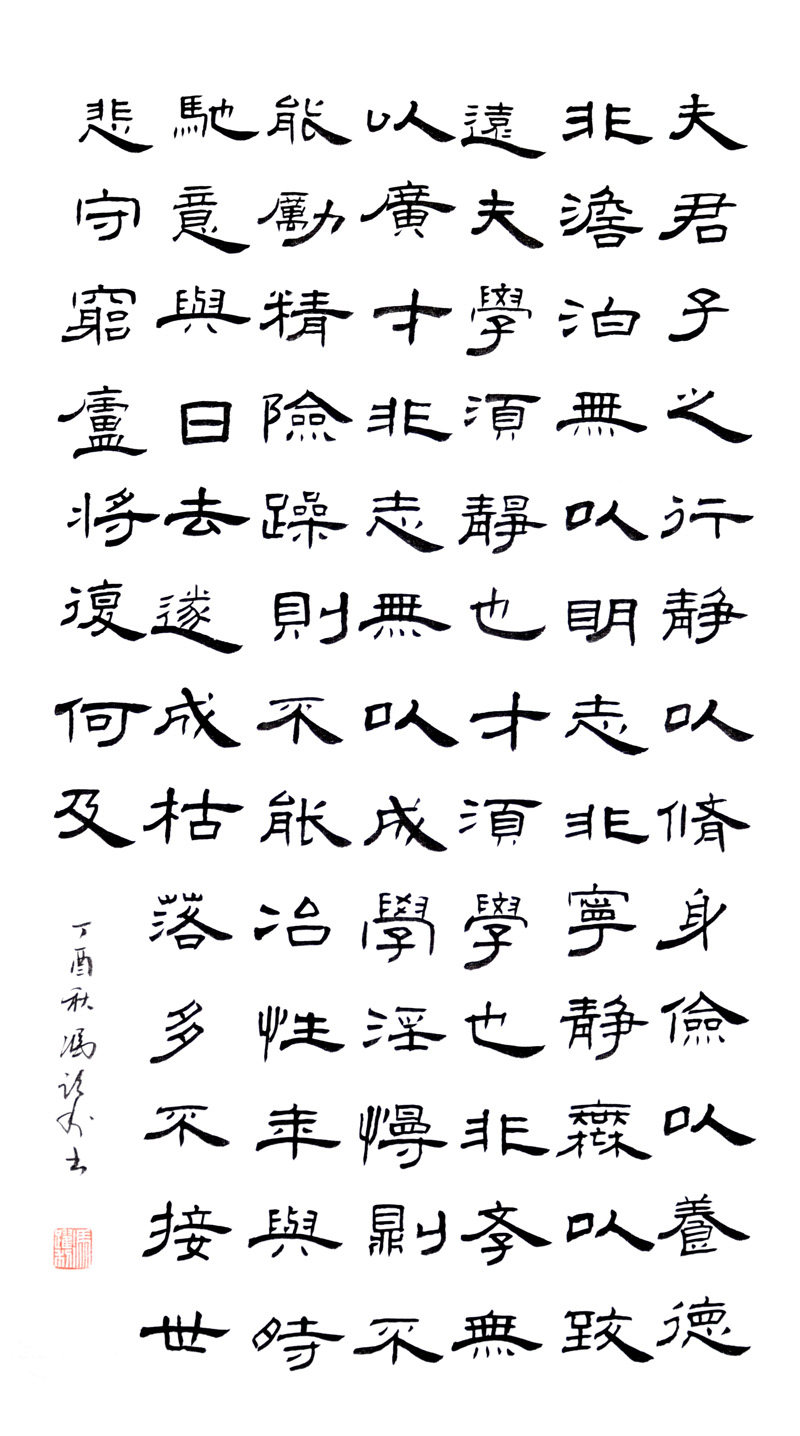 夫君子之行静以脩身儉以養德
非澹泊無以明志非寧静無以致
遠夫學須靜也才須學也非斈無
以廣才非志無以成學淫慢則不
能勵精險躁則不能冶性年與時
馳意與日去遂成枯落多不接世
悲守窮廬將復何及
丁酉秋馮书